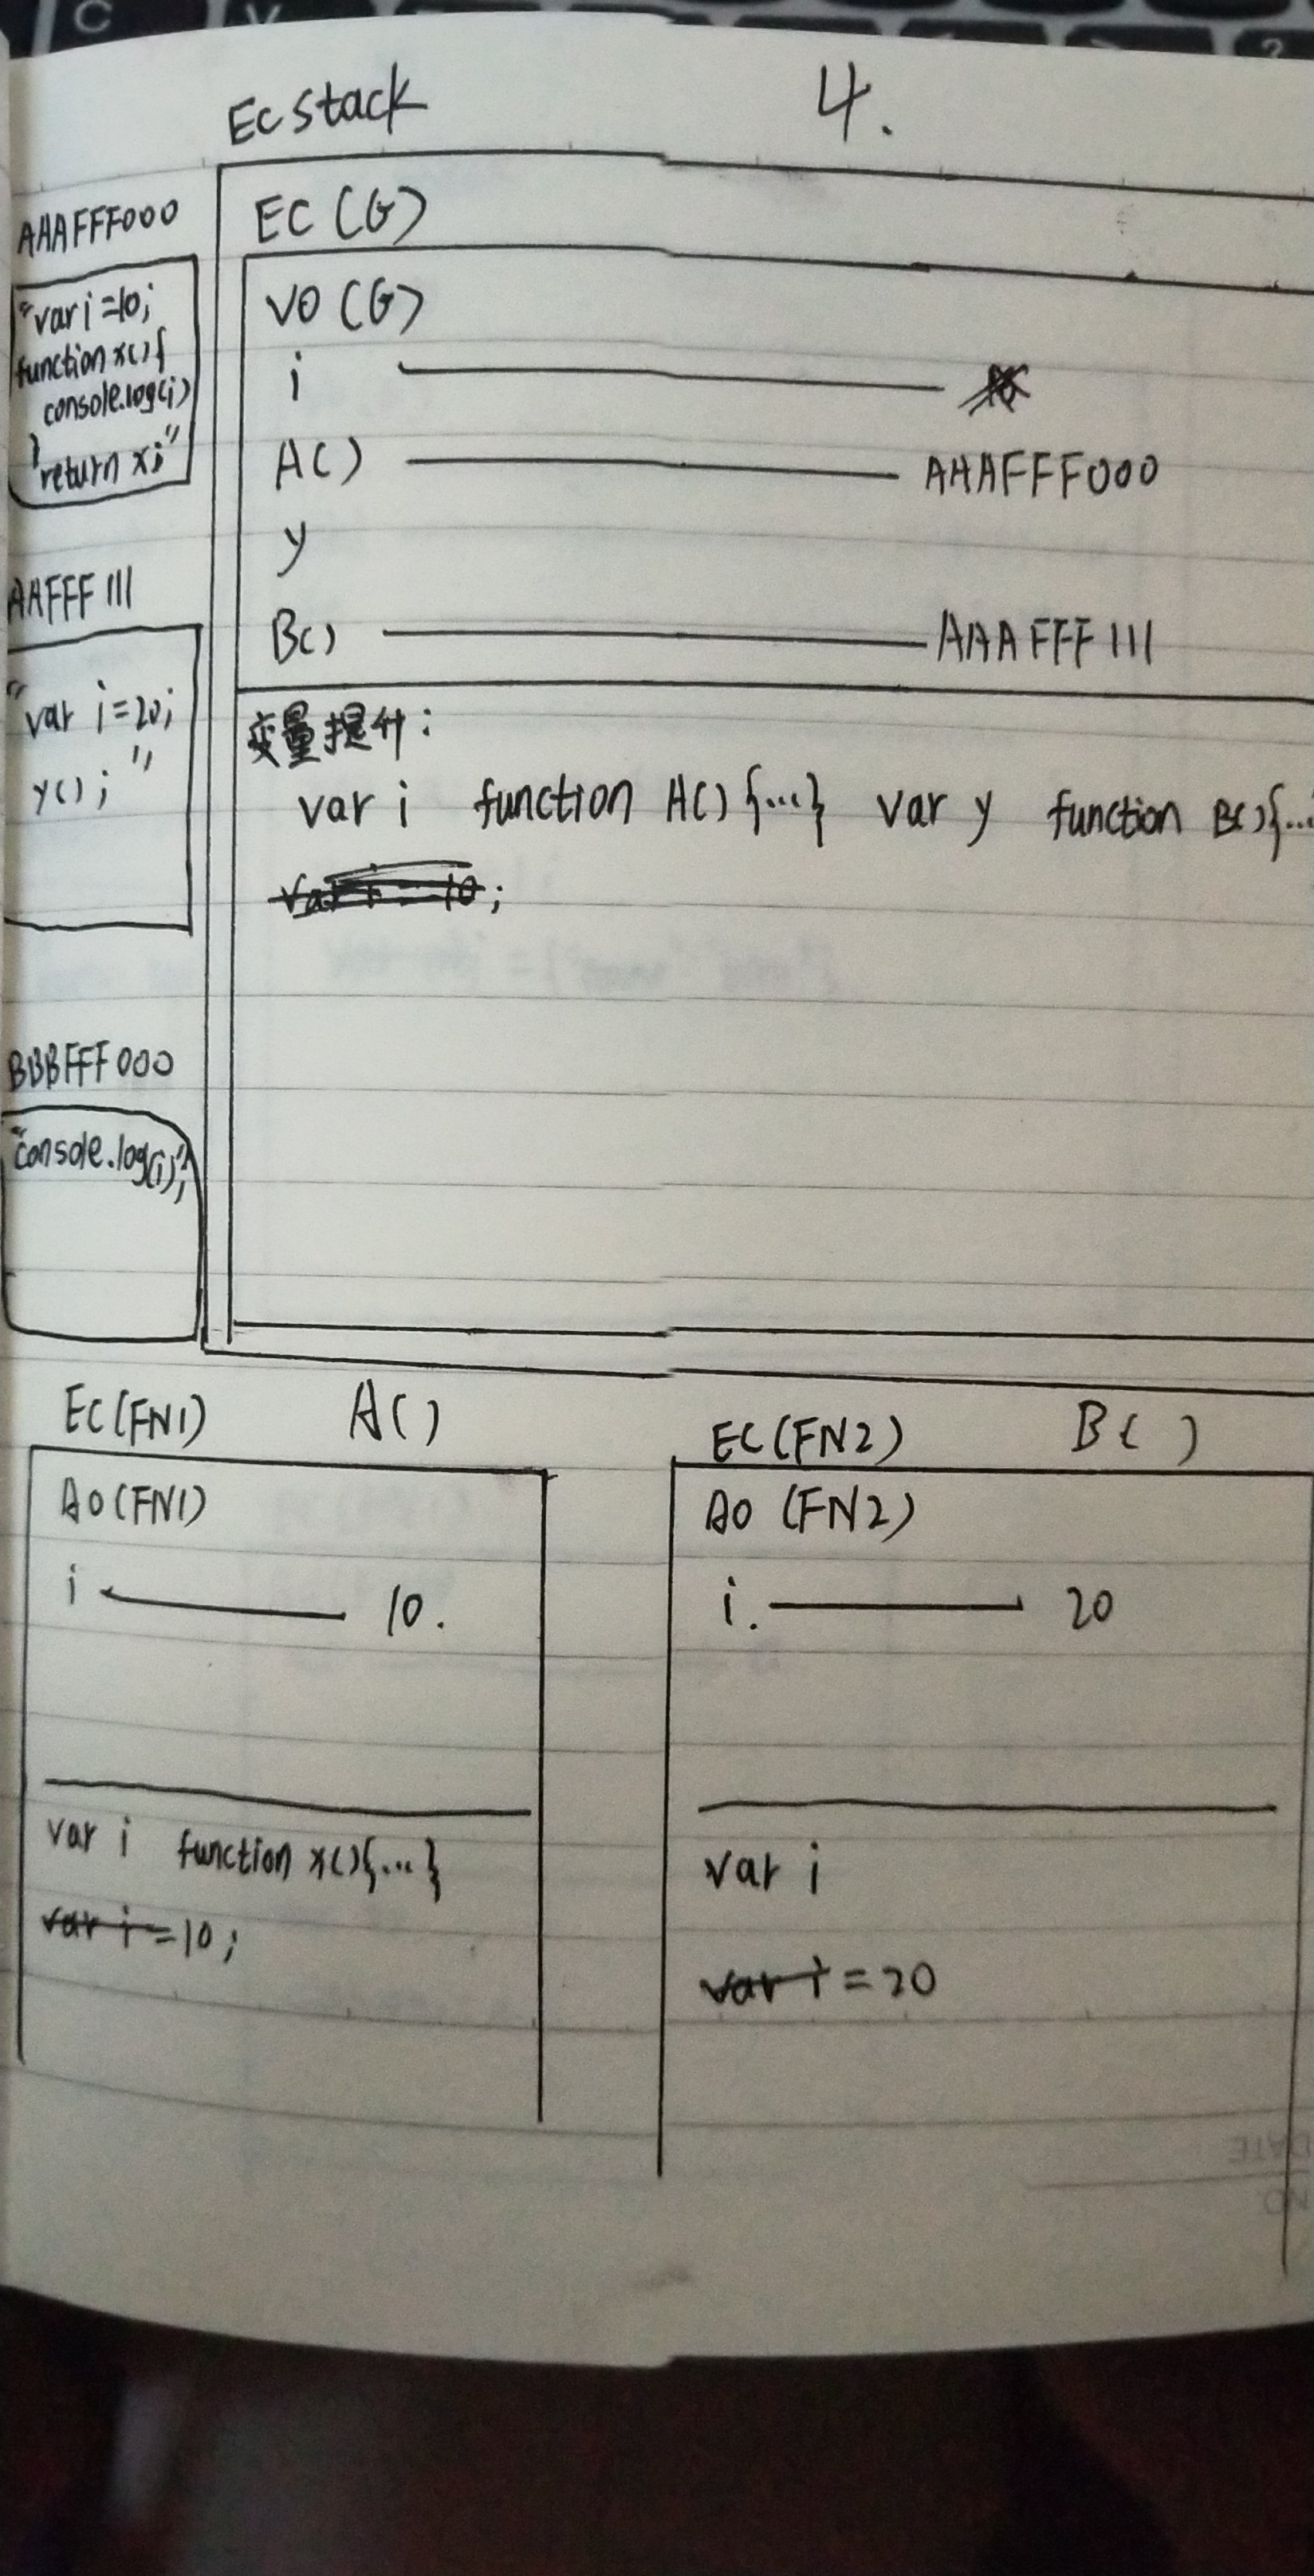 Ec stack
4.
AAAFFF000
"var i=10;
function x(){
console.log(i)
}
return x;"
AAFFF111
"var i=20;
y();"
BBBFFF000
"console.log(i)";
EC(G)
VO(G)
i
A() AAAFFF000
y
B() AAAFFF111
变量提升:
var i function A(){...} var y function B(){...
var i = 10;
EC(FN1) A()
AO(FN1)
i 10.
var i function x(){...}
var i = 10;
EC(FN2) B()
AO(FN2)
i. 20
var i
var i = 20
DATE
NO